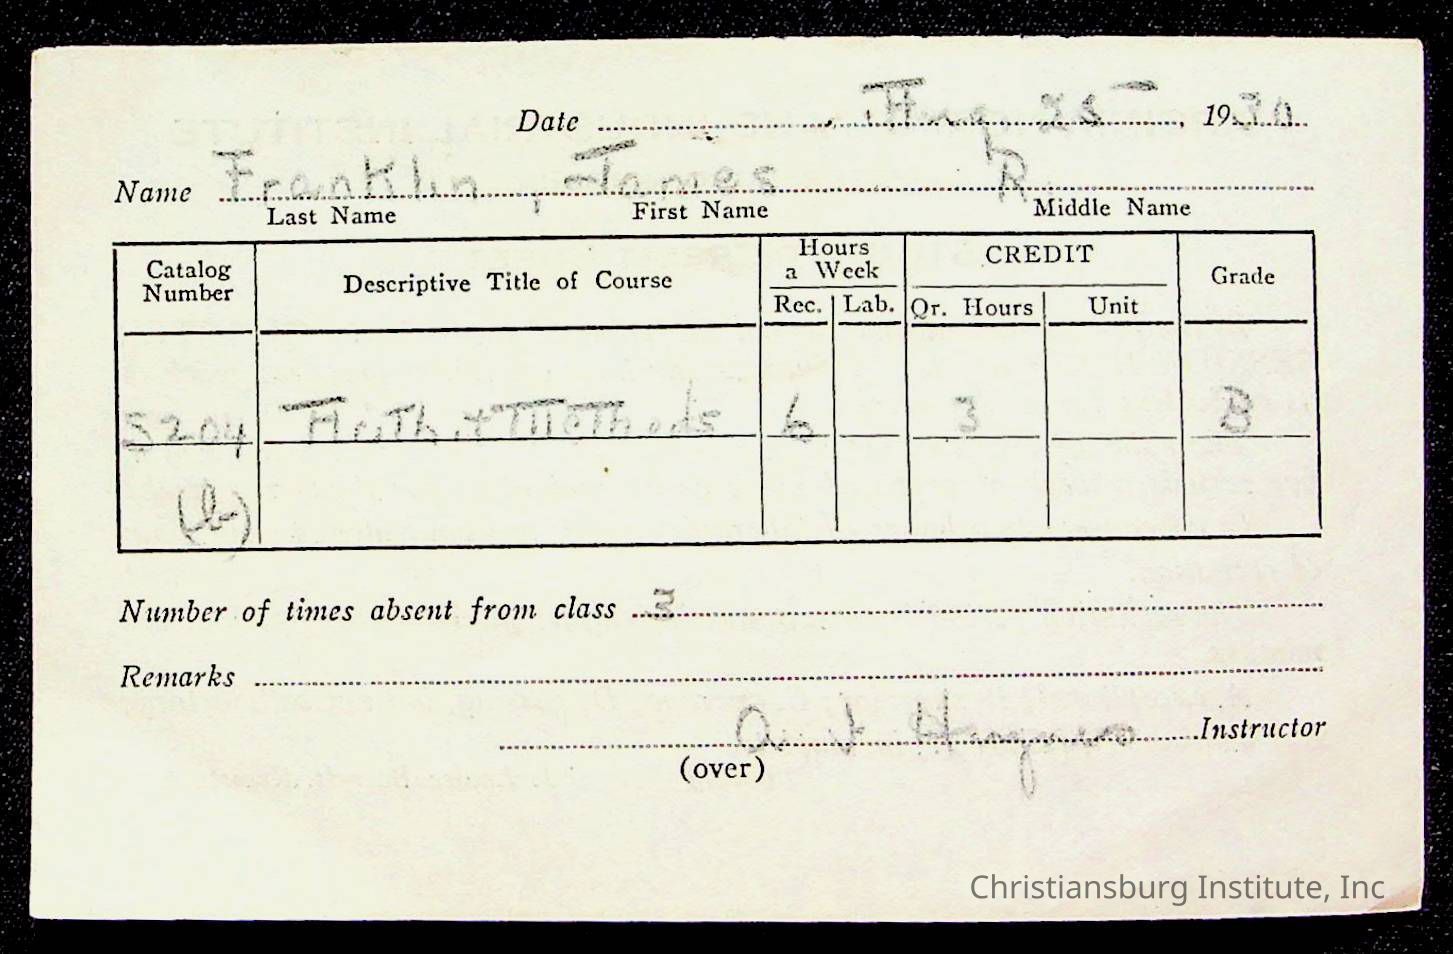 Date Aug 25, 1930
Name Franklin, James R.
Last Name First Name Middle Name
Catalog Number Descriptive Title of Course Hours a Week CREDIT Grade
Rec. Lab. Qr. Hours Unit
5204 Arith. + Methods 6 3 B
(b)
Number of times absent from class 3
Remarks
Instructor
(over)
Christiansburg Institute, Inc